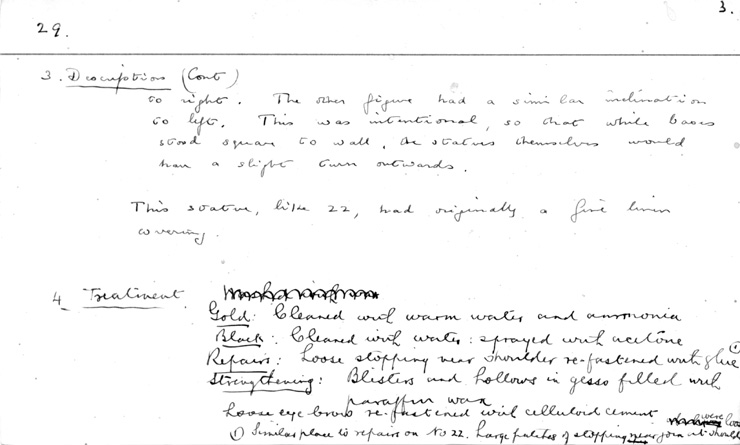 3.
29.
3. Description (Cont)
to right. The other figure had a similar inclination
to left. This was intentional, so that while bases
stood square to wall, the statues themselves would
have a slight turn outwards.
This statue, like 22, had originally a fine linen
covering.
4. Treatment
Gold: Cleaned with warm water and ammonia
Black: Cleaned with water: sprayed with acetone
Repairs: Loose stopping near shoulder re-fastened with glue ①
Strengthening: Blisters and hollows in gesso filled with
paraffin wax
Loose eye brows re-fastened with celluloid cement
① Similar place to repairs on No 22. Large patches of stopping near join at shoulder were